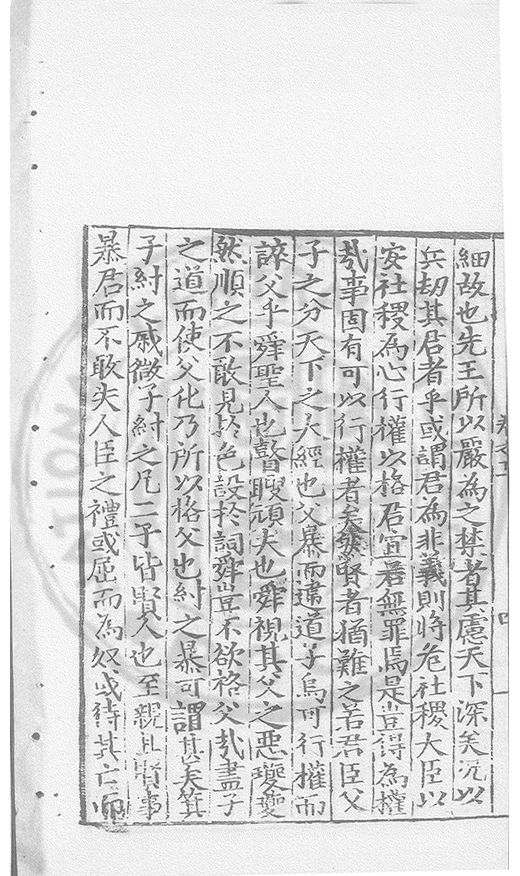 細故也先王所以嚴為之禁者其慮天下深矣況以
兵刼其君者乎或謂君為非義則將危社稷大臣以
安社稷為心行權以格君宜若無罪焉是豈得為權
㢤事固有可以行權者矣然賢者猶難之若君臣父
子之分天下之大經也父暴而違道子烏可行權而
誶父乎舜聖人也瞽瞍頑夫也舜視其父之惡夔夔
然順之不敢見於色設於詞舜豈不欲格父㢤盡子
之道而使父化乃所以格父也紂之暴可謂甚矣箕
子紂之戚微子紂之兄二子皆賢人也至親且賢事
暴君而不敢失人臣之禮或屈而為奴或待其亡而
卷之二
四